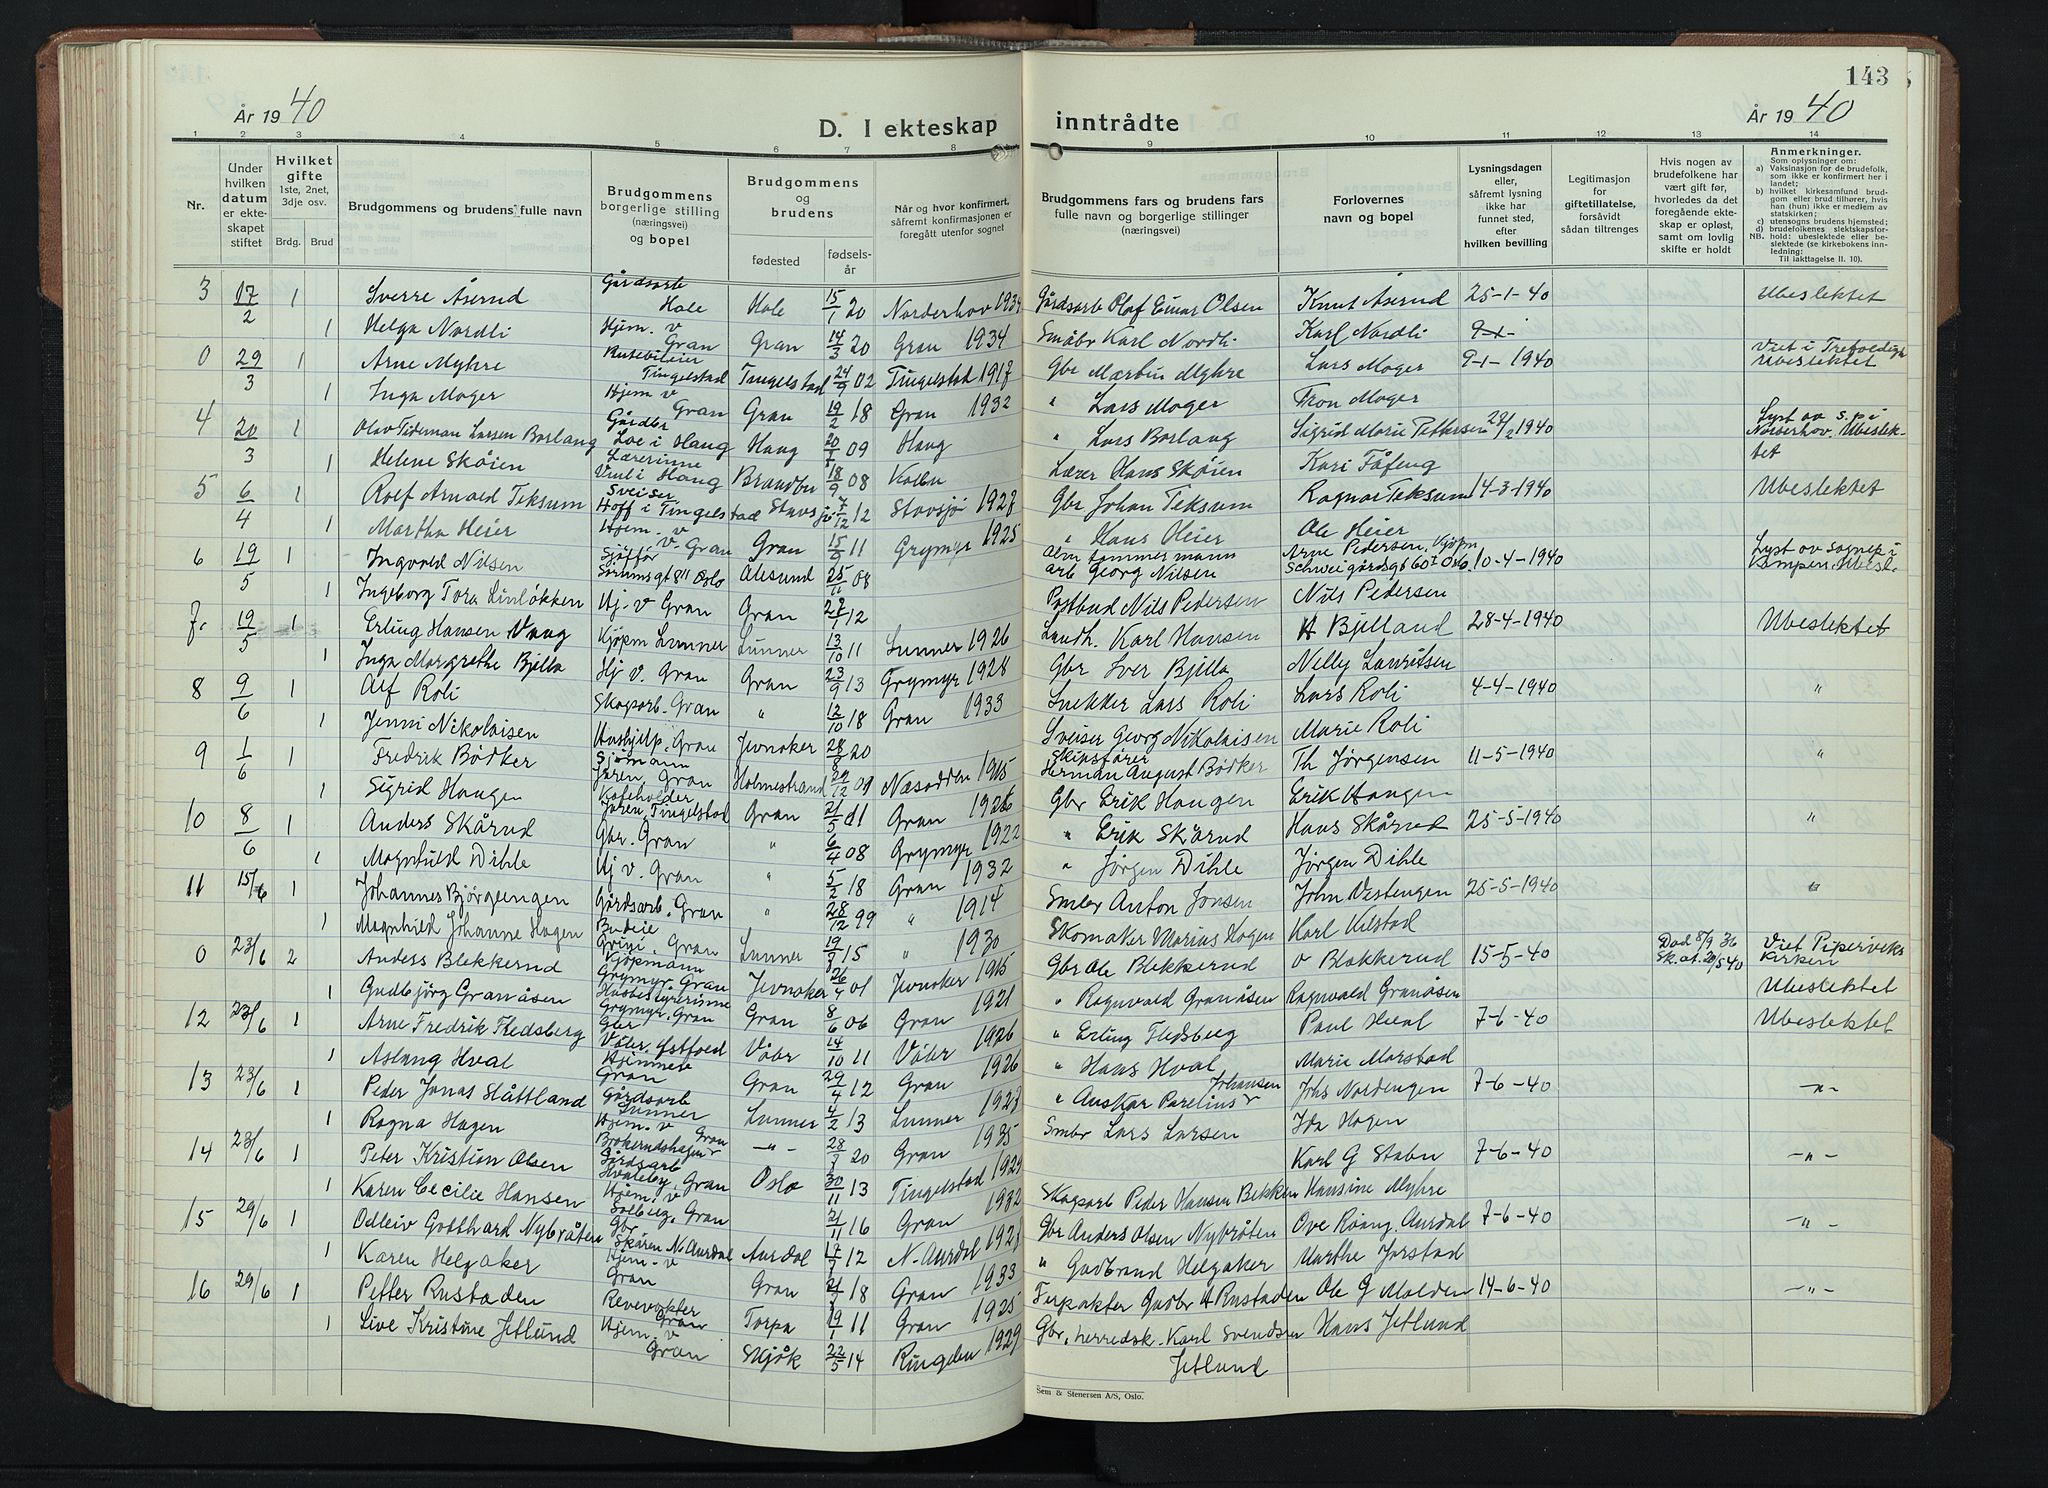 143
År 1940
D. I ekteskap inntrådte
År 1940
1 2 3 4 5 6 7 8 9 10 11 12 13 14
Nr.
Under hvilken datum er ekteskapet stiftet
Hvilket gifte 1ste, 2net, 3dje osv.
Brdg. Brud
Brudgommens og brudens fulle navn
Brudgommens borgerlige stilling (næringsvei) og bopel
Brudgommens og brudens
fødested
fødselsår
Når og hvor konfirmert, såfremt konfirmasjonen er foregått utenfor sognet
Brudgommens fars og brudens fars fulle navn og borgerlige stillinger (næringsvei)
Forlovernes navn og bopel
Lysningsdagen eller, såfremt lysning ikke har funnet sted, efter hvilken bevilling
Legitimasjon for giftetillatelse, forsåvidt sådan tiltrenges
Hvis nogen av brudefolkene har vært gift før, hvorledes da det foregående ekteskap er opløst, samt om lovlig skifte er holdt
Anmerkninger.
Som oplysninger om:
a) Vaksinasjon for de brudefolk, som ikke er konfirmert her i landet;
b) hvilket kirkesamfund brudgom eller brud tilhører, hvis han (hun) ikke er medlem av statskirken;
c) utensogns brudens hjemsted;
d) brudefolkenes slektskapsforhold: ubeslektede eller beslektede (se kirkebokens innledning:
NB. Til iakttagelse II. 10).
3 17/2 1 Sverre Åsrud Gårdsarb Hole Hole 15/1 20 Norderhov 1934 Gårdsarb Olaf Einar Olsen Knut Åsrud 25-1-40 Ubeslektet
1 Helga Nordli Hjem. v Gran Gran 14/3 20 Gran 1934 Småbr Karl Nordli Karl Nordli
0 29/3 Arne Myhre Rutebileier Tingelstad Tingelstad 24/9 02 Tingelstad 1917 Gbr Martin Myhre Lars Moger 9-1-1940 Viet i Trefoldigh Ubeslektet
1 Inga Moger Hjem v Gran Gran 19/2 18 Gran 1932 " Lars Moger Tron Moger
4 20/3 1 Olav Tideman Larsen Borlaug Gårdbr Loe i Haug Haug 09 Haug " Lars Borlaug Sigrid Marie Pettersen 1940 Lyst av s.p i Norderhov. Ubeslektet
1 Helene Skøien Lærerinne Haug Brandbu 18/9 08 Kolbu Lærer Hans Skøien Kari Tåfeng
5 6/4 1 Rolf Arnold Teksum Sveiser Hoff i Tingelstad Stavsjø 7/12 12 Stavsjø 1927 Gbr Johan Teksum Ragnar Teksum 14-3-1940 Ubeslektet
1 Martha Heier Hjem. v. Gran Gran 11 Grymyr 1925 " Hans Heier Ole Heier
6 19/5 1 Ingvald Nilsen Sjåfør Sørumsgt 8II Oslo Ålesund 25/11 08 arb Georg Nilsen Arne Pedersen, Kjøpm Schweigårdsgt 60I Oslo 10-4-1940 Lyst av sognep i Kampen. Ubesl.
1 Ingeborg Tora Linløkken Hj. v Gran Gran 12 Postbud Nils Pedersen Nils Pedersen
7. 19/5 1 Erling Hansen Vaag Kjøpm Lunner Lunner 13/10 11 Lunner 1926 Landh. Karl Hansen H Bjelland 28-4-1940 Ubeslektet
1 Inga Margrethe Bjella Hj v. Gran Gran 23/9 13 Grymyr 1928 Gbr Iver Bjella Nelly Lauritsen
8 9/6 1 Alf Roli Skogarb. Gran " 12/10 18 Gran 1933 Snekker Lars Roli Lars Roli 4-4-1940 "
1 Jenni Nikolaisen Hushjelp, Gran Jevnaker 20 Sveiser Georg Nikolaisen Marie Roli
9 1/6 1 Fredrik Bødker Sjømann Jaren, Gran Holmestrand 09 Nesodden 1915 Skipsfører Herman August Bødker Th Jørgensen 11-5-1940 "
1 Sigrid Haugen Kafeholder Jaren, Tingelstad Gran 21/5 11 Gran 1926 Gbr Erik Haugen Erik Haugen
10 8/6 1 Anders Skårud Gbr. Gran " 6/4 08 Grymyr 1922 " Erik Skårud Hans Skårud 25-5-1940 "
1 Magnhild Dihle Hj v. Gran " 5/2 18 Gran 1932 " Jørgen Dihle Jørgen Dihle
11 15/6 1 Johannes Bjørgeengen Gårdsarb. Gran " 28/12 99 " 1914 Smbr Anton Jonsen John Vestengen 25-5-1940 "
1 Magnhild Johanne Hagen Budeie Gran Lunner 15 " 1930 Skomaker Marius Hagen Karl Vilstad
0 23/6 2 Anders Blekkerud Kjøpmann Grymyr, Gran Jevnaker 26/4 01 Jevnaker 1915 Gbr Ole Blekkerud O Blekkerud 15-5-40 Død 8/9 36 Sk. at. 20/5 40 Viet Piperviks Kirken
1 Gudbjørg Granåsen Husbestyrerinne Grymyr, Gran Gran 8/6 06 Gran 1921 " Ragnvald Granåsen Ragnvald Granåsen Ubeslektet
12 23/6 1 Arne Fredrik Fledsberg Gbr Våler, Østfold Våler 14/10 11 Våler 1926 " Erling Fledsberg Paul Hval 7-6-40 Ubeslektet
1 Aslaug Hval Hjemme Gran Gran 29/4 12 Gran 1926 " Hans Hval Marie Morstad
13 23/6 1 Peder Jonas Slåttland Gårdsarb Lunner Lunner 4/2 13 Lunner 1927 " Anskar Parelius Johansen Johs Nordengen 7-6-40 -"-
1 Ragna Hagen Hjem. v Gran -"- 20 Gran 1935 Smbr Lars Larsen Ida Hagen
14 23/6 1 Peter Kristian Olsen Gårdsarb Hvaleby, Gran Oslo 30/11 13 Tingelstad 1929 Karl G Stabu 7-6-40 -"-
1 Karen Cecilie Hansen Hjem. v Solberg, Gran 21/11 16 Gran 1932 Skogarb Peder Hansen Bekken Hansine Myhre
15 29/6 1 Odleiv Gotthard Nybråten Gbr. Skåren N. Aurdal Aurdal 12 N. Aurdal 1928 Gbr Anders Olsen Nybråten Ove Roang, Aurdal 7-6-40 -"-
1 Karen Helgaker Hjem. v Gran Gran 18 Gran 1933 " Gudbrand Helgaker Marthe Jorstad
16 29/6 1 Petter Rustaden Revevokter Gran Torpa 19/1 11 Gran 1925 Forpakter Gudbr A Rustaden Ole G Molden 14-6-40 -"-
1 Live Kristine Jetlund Hjem. v Gran Skjåk 22/5 14 Ringebu 1929 Gbr, herredsk. Karl Svendsen Jetlund Hans Jetlund
Sem & Stenersen A/S, Oslo.